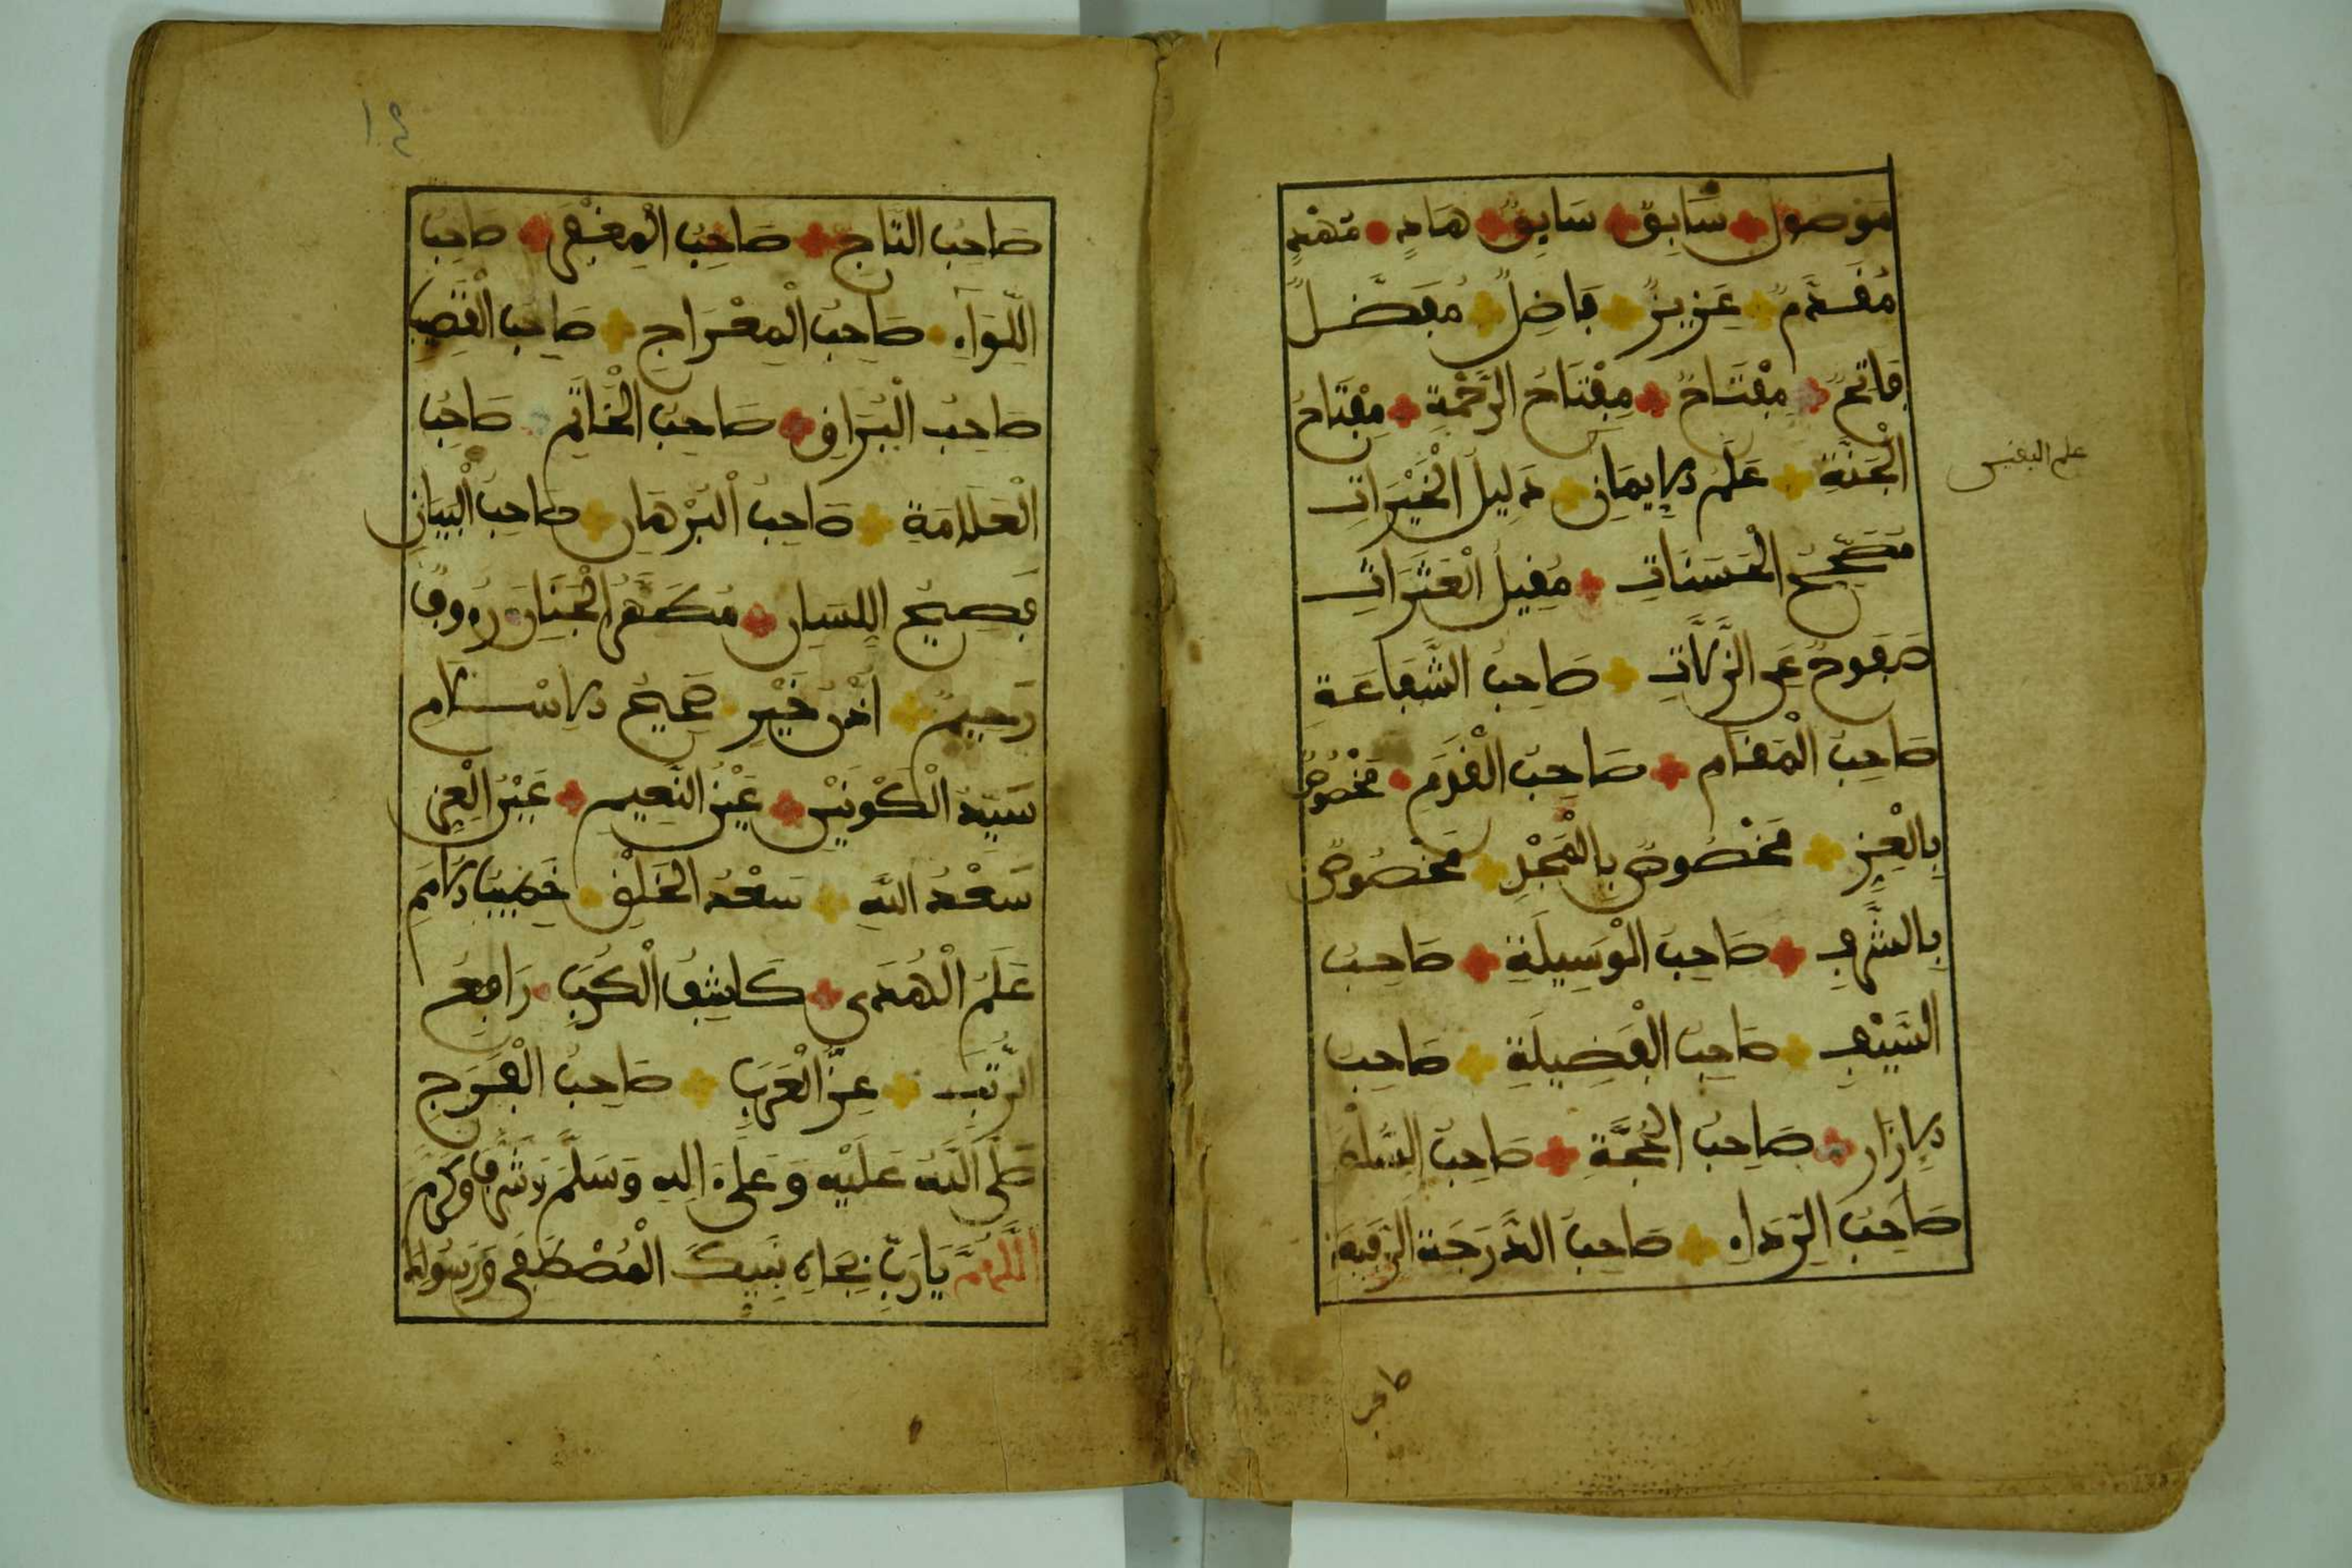 مَوْصُولٌ سَابِقٌ سَايِقٌ هَادٍ مُهْدٍ
مُقَدَّمٌ عَزِيزٌ فَاضِلٌ مُفَضَّلٌ
فَاتِحٌ مِفْتَاحٌ مِفْتَاحُ الرَّحْمَةِ مِفْتَاحُ
الْجَنَّةِ عَلَمُ الإِيمَانِ دَلِيلُ الْخَيْرَاتِ
علم اليقين
مُصَحِّحُ الْحَسَنَاتِ مُقِيلُ الْعَثَرَاتِ
صَفُوحٌ عَنِ الزَّلَّاتِ صَاحِبُ الشَّفَاعَةِ
صَاحِبُ الْمَقَامِ صَاحِبُ الْقَدَمِ مَخْصُوصٌ
بِالْعِزِّ مَخْصُوصٌ بِالْمَجْدِ مَخْصُوصٌ
بِالشَّرَفِ صَاحِبُ الْوَسِيلَةِ صَاحِبُ
السَّيْفِ صَاحِبُ الْفَضِيلَةِ صَاحِبُ
الإِزَارِ صَاحِبُ الْحُجَّةِ صَاحِبُ السُّلْطَانِ
صَاحِبُ الرِّدَاءِ صَاحِبُ الدَّرَجَةِ الرَّفِيعَةِ
صَاحِبُ التَّاجِ صَاحِبُ الْمِغْفَرِ صَاحِبُ
اللِّوَاءِ صَاحِبُ الْمِعْرَاجِ صَاحِبُ الْقَضِيبِ
صَاحِبُ الْبُرَاقِ صَاحِبُ الْخَاتَمِ صَاحِبُ
الْعَلَامَةِ صَاحِبُ الْبُرْهَانِ صَاحِبُ الْبَيَانِ
فَصِيحُ اللِّسَانِ مُطَهَّرُ الْجَنَانِ رَءُوفٌ
رَحِيمٌ أُذُنُ خَيْرٍ صَحِيحُ الإِسْلَامِ
سَيِّدُ الْكَوْنَيْنِ عَيْنُ النَّعِيمِ عَيْنُ الْعِزِّ
سَعْدُ اللَّهِ سَعْدُ الْخَلْقِ خَطِيبُ الأُمَمِ
عَلَمُ الْهُدَى كَاشِفُ الْكُرَبِ رَافِعُ
الرُّتَبِ عِزُّ الْعَرَبِ صَاحِبُ الْفَرَجِ
صَلَّى اللَّهُ عَلَيْهِ وَعَلَى ءَالِهِ وَسَلَّمَ وَشَرَّفَ وَكَرَّمَ
اللَّهُمَّ يَا رَبِّ بِجَاهِ نَبِيِّكَ الْمُصْطَفَى وَرَسُولِكَ